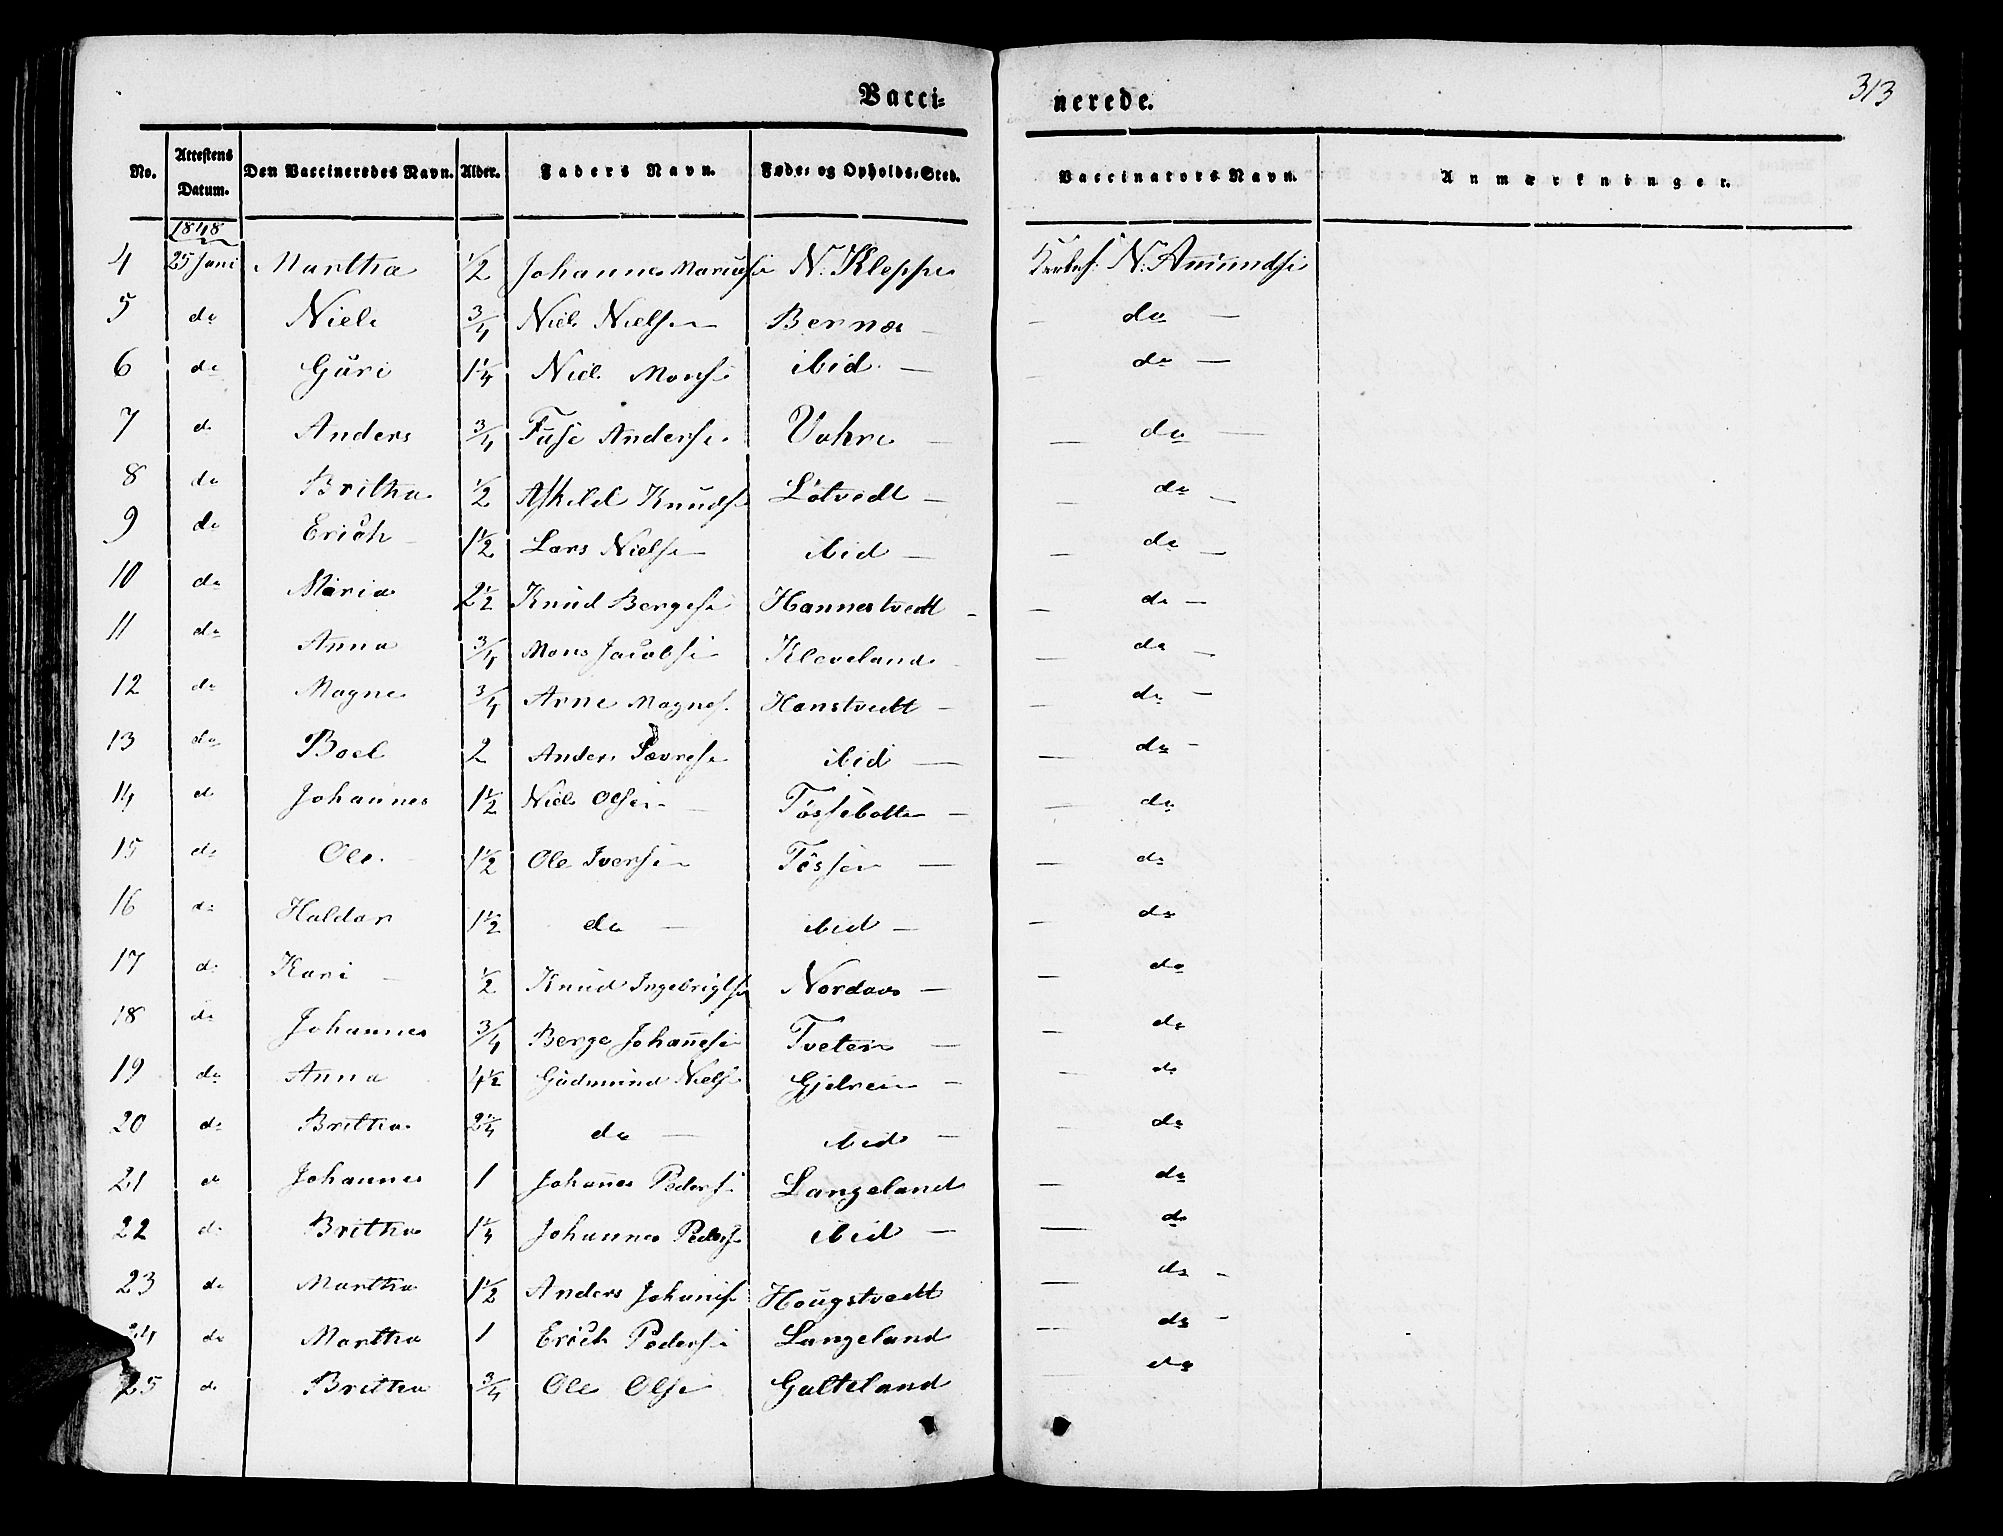 Vacci- nerede. 313
No. Attestens Datum. Den Vaccineredes Navn. Alder. Faders Navn. Føde- og Opholds-Sted. Vaccinators Navn. Anmærkninger.
1848
4 25 Juni Martha 1/2 Johannes N. Kleppe N. Amundse
5 do Niels 3/4 Niels Nielsen Berna — — do —
6 do Guri 1 1/4 Niels Monse ibid. — — do —
7 do Anders 3/4 Fuse Anderse Vahre — — do —
8 do Britha 1/2 Askild Knuds Lötvedt — — do —
9 do Erich 1 1/2 Lars Nielse ibid — — do —
10 do Maria 2 1/2 Knud Bergese Hannestvedt — — do —
11 do Anna 3/4 Mons Jacobse Kleveland — — do —
12 do Magne 3/4 Arne Magnes. Hanstvedt — — do —
13 do Boel 2 Anders ibid — — do —
14 do Johannes 1 1/2 Niels Olsen Tössebotte — — do
15 do Ole. 1 1/2 Ole Iversen Tössen — — do
16 do Haldor 1 1/2 do — ibid — — do
17 do Kari — 1/2 Knud Ingebrigtse Nordaas — — do
18 do Johannes 3/4 Berge Johanese Tveten — — do
19 do Anna 4 1/2 Gudmund Niels Gjelrein — — do
20 do Britha 2 1/4 do — ibid — — do
21 do Johannes 1 Johanes Peders Langeland — do
22 do Britha 1 1/4 Johannes Peders ibid — — do
23 do Martha 1 1/2 Anders Johanes Hougstvedt — do —
24 do Martha 1 Erich Pederse Langeland — do —
25 do Britha 3/4 Ole Olse Galteland — do